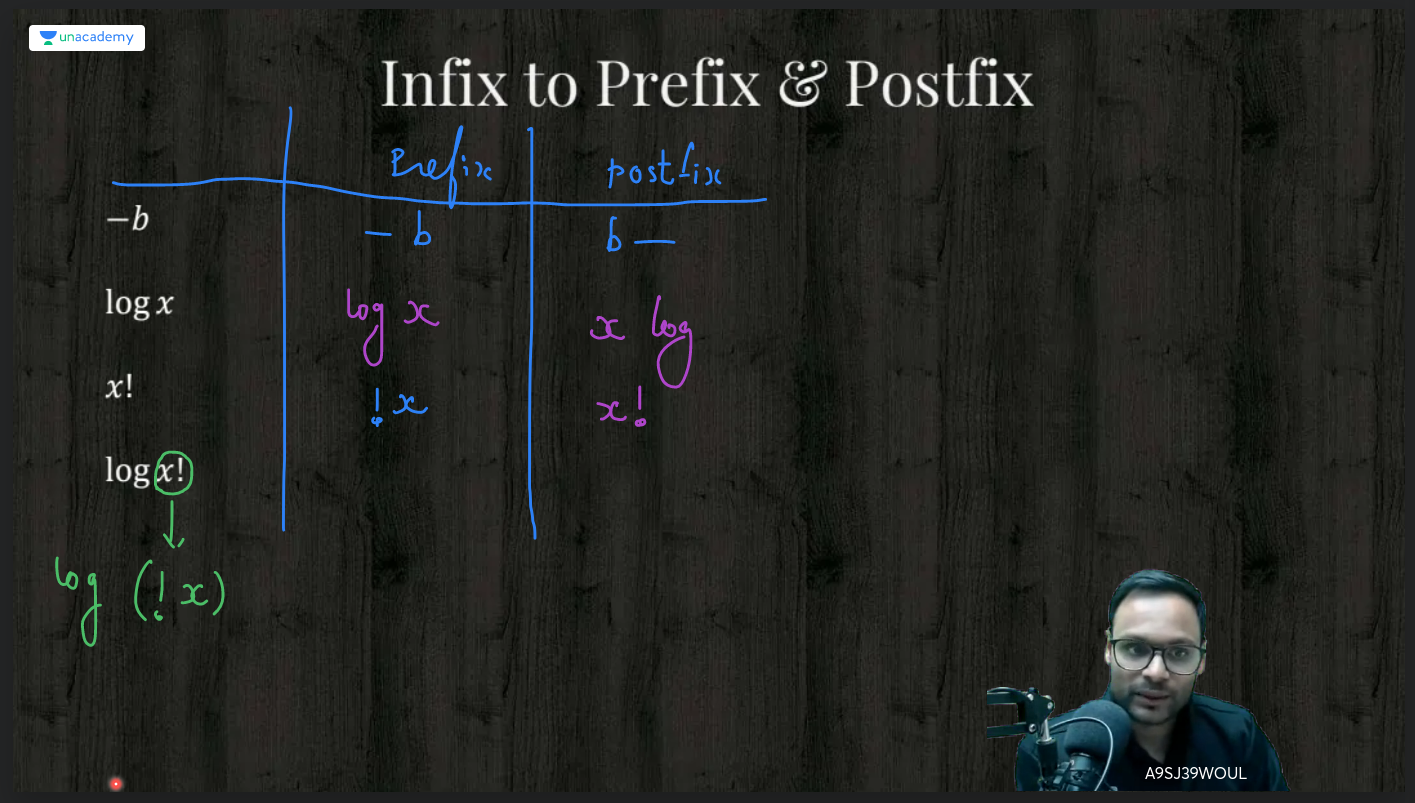 unacademy
Infix to Prefix & Postfix
Prefix postfix
−b − b b −
log x log x x log
x! ! x x !
log x!
log (! x)
A9SJ39WOUL